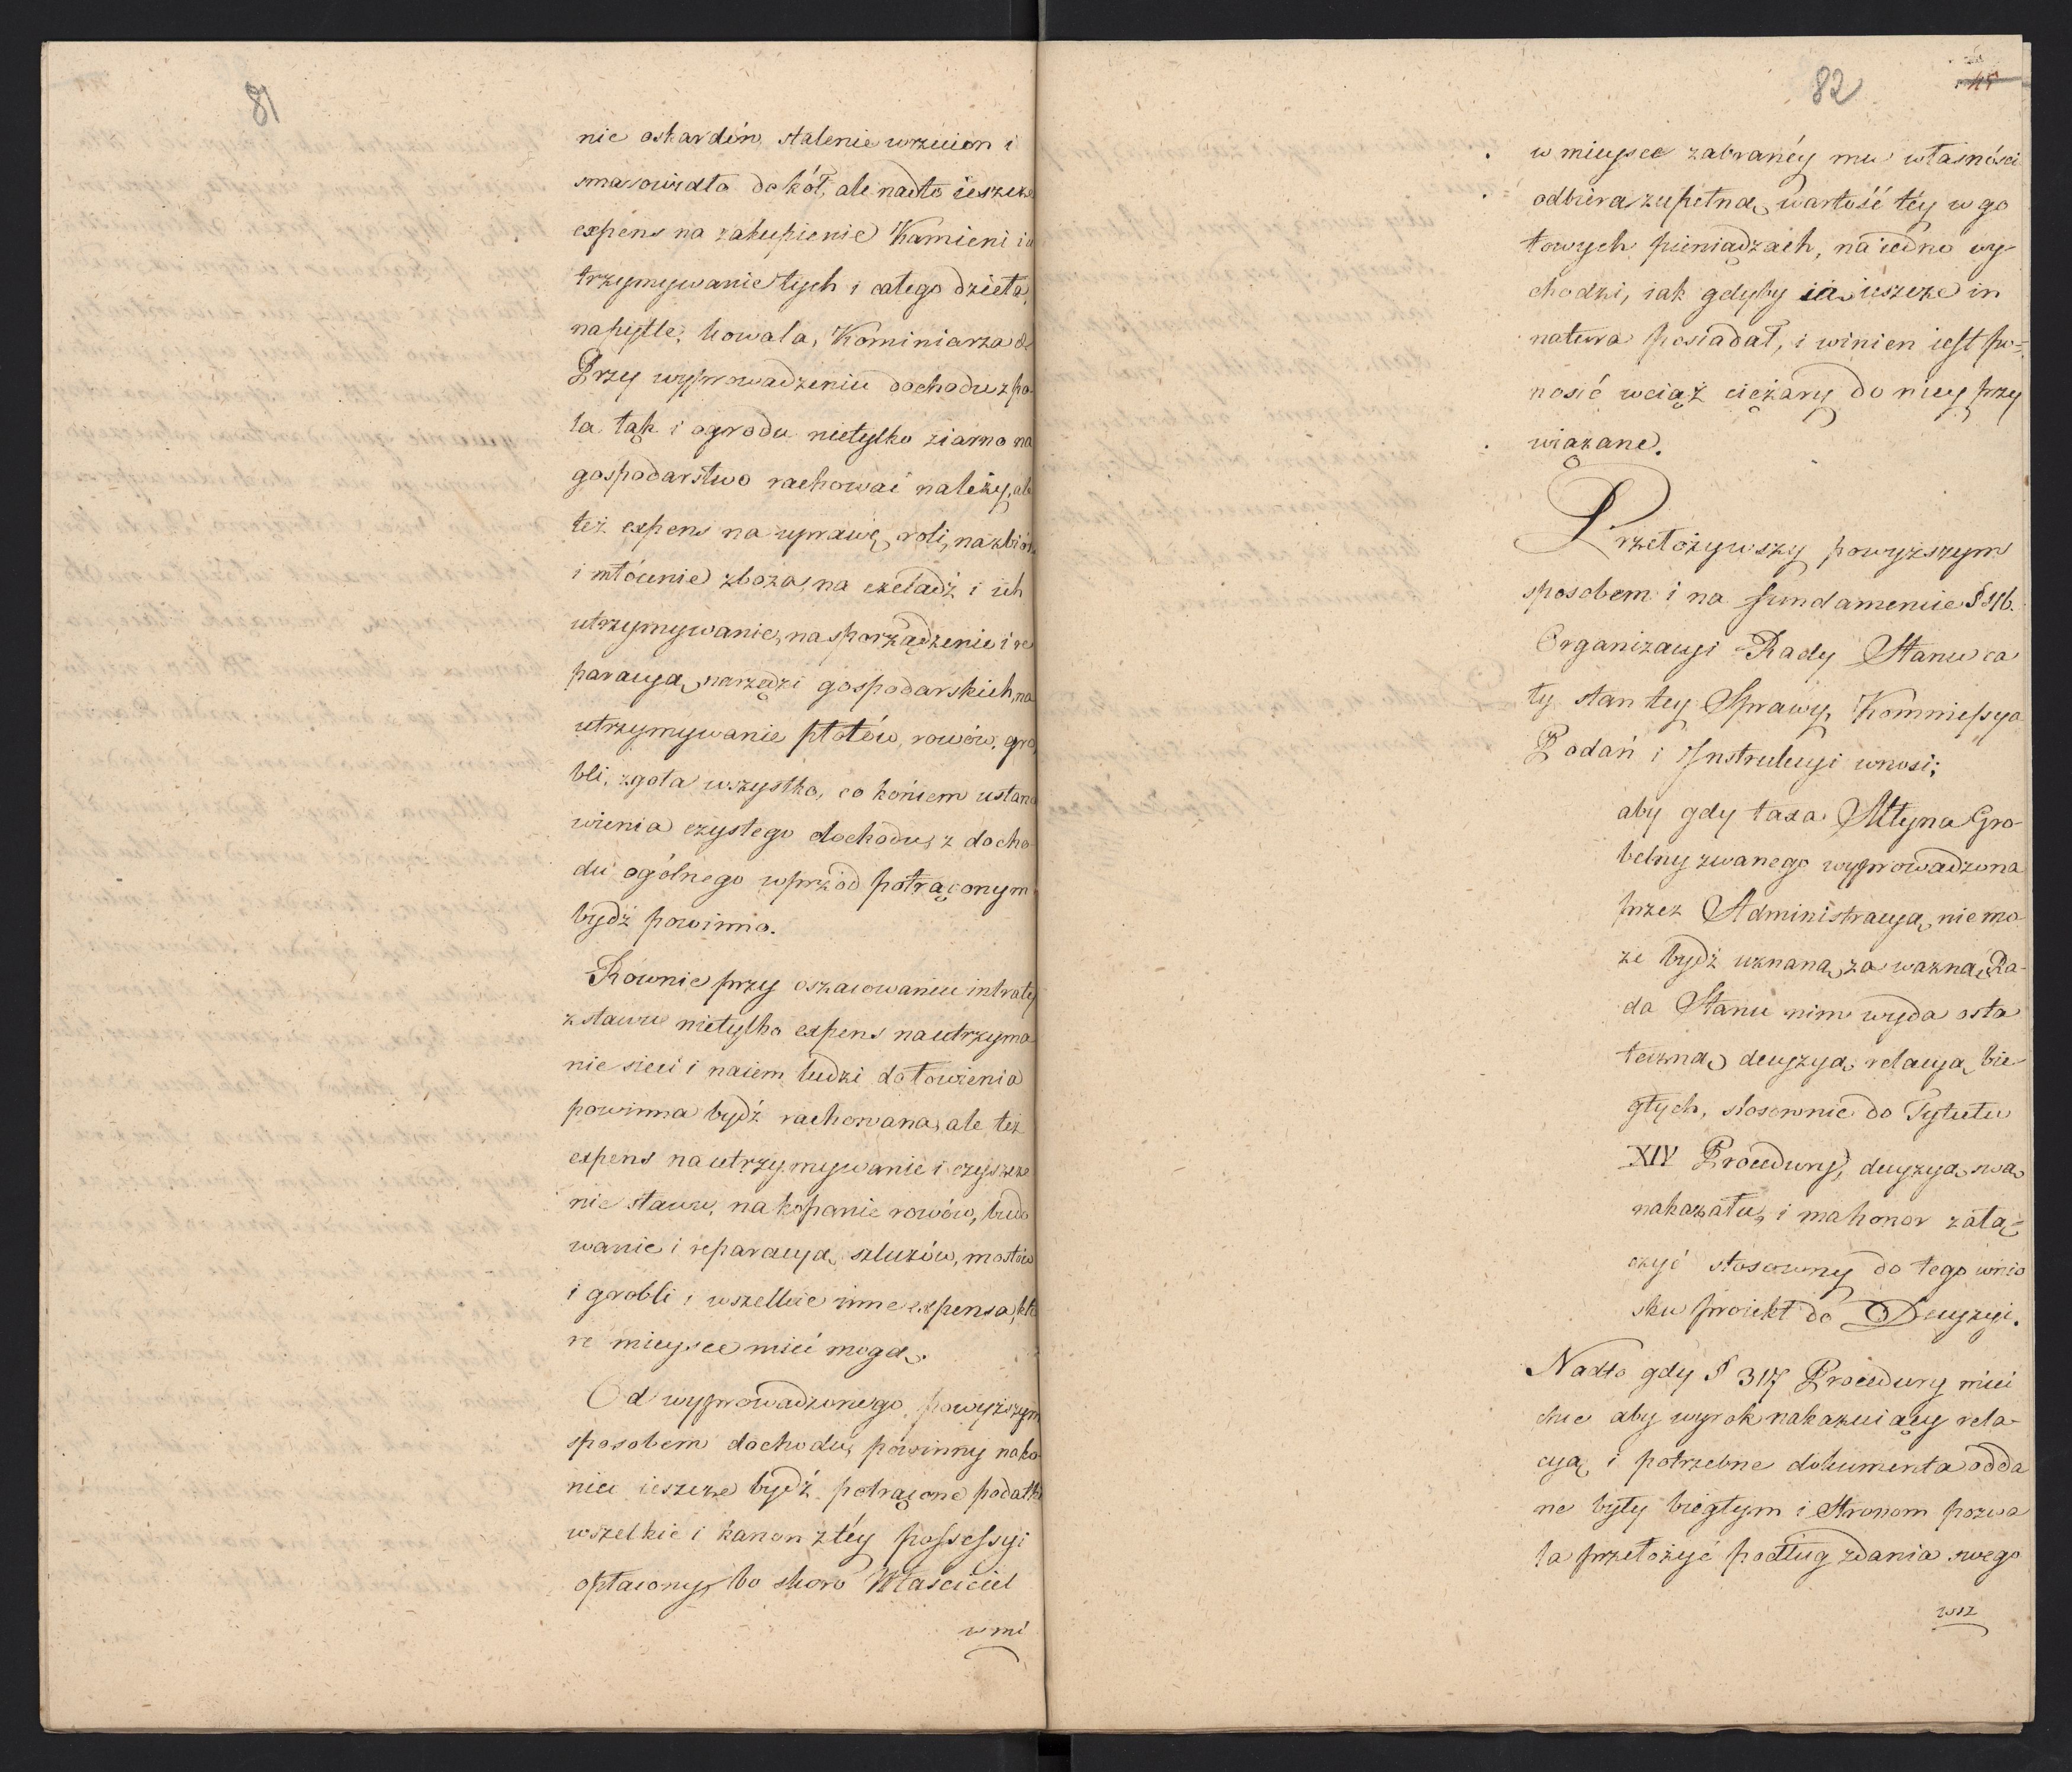 81
nie oskardów, stalenie wrzecion i
smarowidła do kół, ale nadto ieszcze
expens na zakupienie Kamieni i u
trzymywanie tych i całego dzieła,
na pytle, kowala, Kominiarza &
Przy wyprowadzeniu dochodu z po-
la łąk i ogrodu nietylko ziarno na
gospodarstwo rachować należy, ale
też expens na uprawę roli, na zbiór
i młócenie zboża, na czeladź i ich
utrzymywanie, na sporządzenie i re
paracyą narzędzi gospodarskich, na
utrzymywanie płotów, rowów, gro
bli, zgoła wszystko, co końcem ustano
wienia czystego dochodu, z docho
du ogólnego wprzód potrąconym
bydź powinno.
Rownie przy oszacowaniu intraty
z stawu nietylko expens na utrzyma
nie sieci i naiem ludzi do łowienia
powinna bydź rachowana, ale też
expens na utrzymywanie i czyszcze
nie stawu, na kopanie rowów, budo
wanie i reparacyą szluzów, mostów
i grobli i wszelkie inne expensa, któ
re mieysce mieć mogą.
Od wyprowadzonego powyższym
sposobem dochodu, powinny nako
niec ieszcze bydź potrącone podatki
wszelkie i kanon z téy possessyi
opłacony, bo skoro Właściciel
w mi
82
45
w mieysce zabranéy mu własności
odbiera zupełną wartość téy w go
towych pieniądzach, na iedno wy-
chodzi, iak gdyby ią ieszcze in
natura posiadał, i winien iest po-
nosić wciąż ciężary do niey przy
wiązane.
Przełożywszy powyższym
sposobem i na fundamencie § 46.
Organizacyi Rady Stanu ca
ły stan tey Sprawy, Kommissya
Podań i Instrukcyi wnosi;
aby gdy taxa Młyna Gro-
belny zwanego wyprowadzona
przez Administracyą, nie mo
że bydź uznaną za ważną, Ra-
da Stanu nim wyda osta
teczną decyzyą, relacyą bie-
głych, stosownie do Tytułu
XIV Procedury, decyzyą swą
nakazała, i ma honor załą-
czyć stosowny do tego wnio
sku proiekt do Decyzyi.
Nadto gdy § 317 Procedury mieć
chce aby wyrok nakazuiący rela-
cyą i potrzebne dokumenta odda
ne były biegłym i Stronom pozwa
la przełożyć podług zdania swego
wsz